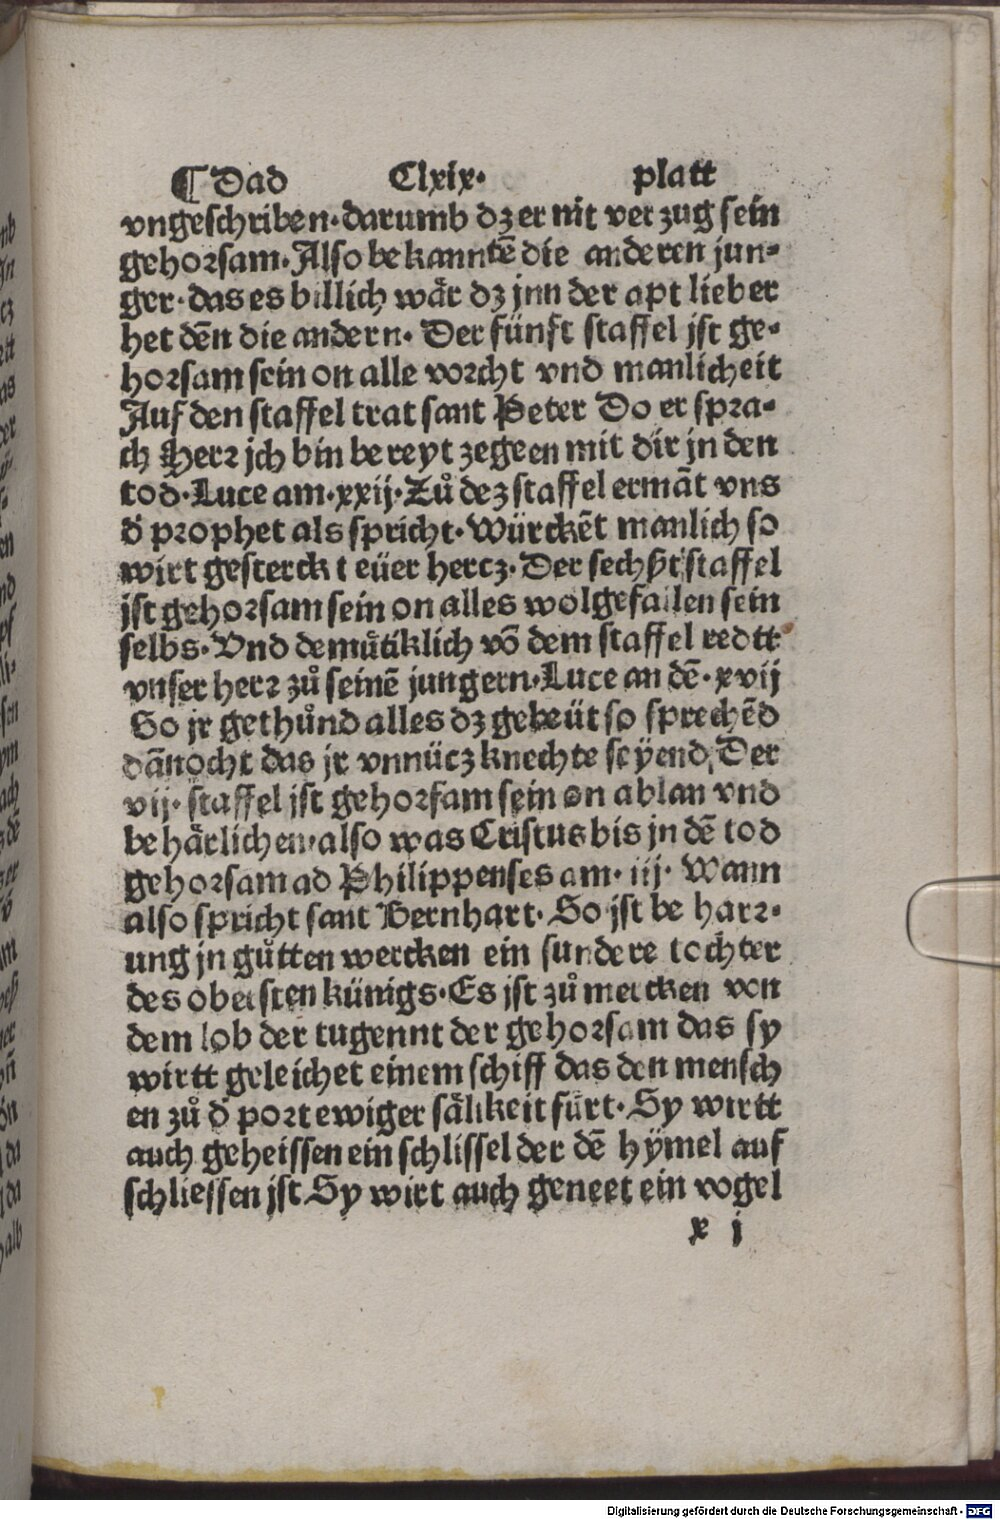 ¶ Dad Clxix· platt
vngeschriben·darumb dz er nit verzug sein
gehorsam·Also bekanntē die anderen jun⸗
ger·das es billich wär dz jnn der apt lieber
het dēn die andern· Der fünft staffel jst ge⸗
horsam sein on alle vorcht vnd manlicheit
Auf den staffel trat sant Peter Do er spra⸗
ch Herr jch bin bereyt zegeen mit dir jn den
tod·Luce am·xxij·Zů dez staffel ermāt vns
d̄ prophet als spricht·Würckēt manlich so
wirt gesterckt eüer hercz·Der sechßt staffel
jst gehorsam sein on alles wolgefallen sein
selbs·Vnd demůtiklich vō dem staffel redtt
vnser herr zů seinē jungern·Luce an dē·xvij
So jr gethůnd alles dz gebeüt so sprechēd
dānocht das jr vnnücz knechte seyend, Der
vij·staffel jst gehorsam sein on ablan vnd
behärlichen also was Cristus bis jn dē tod
gehorsam ad Philippenses am·iij· Wann
also spricht sant Bernhart·So jst be harr⸗
ung jn gůtten wercken ein sundere tochter
des obersten künigs·Es jst zů mercken von
dem lob der tugennt der gehorsam das sy
wirtt geleichet einem schiff das den mensch
en zů d̄ port ewiger sälikeit fürt·Sy wirtt
auch geheissen ein schlissel der dē hÿmel auf
schliessen jst·Sy wirt auch geneet ein vogel
x j
Digitalisierung gefördert durch die Deutsche Forschungsgemeinschaft - DFG